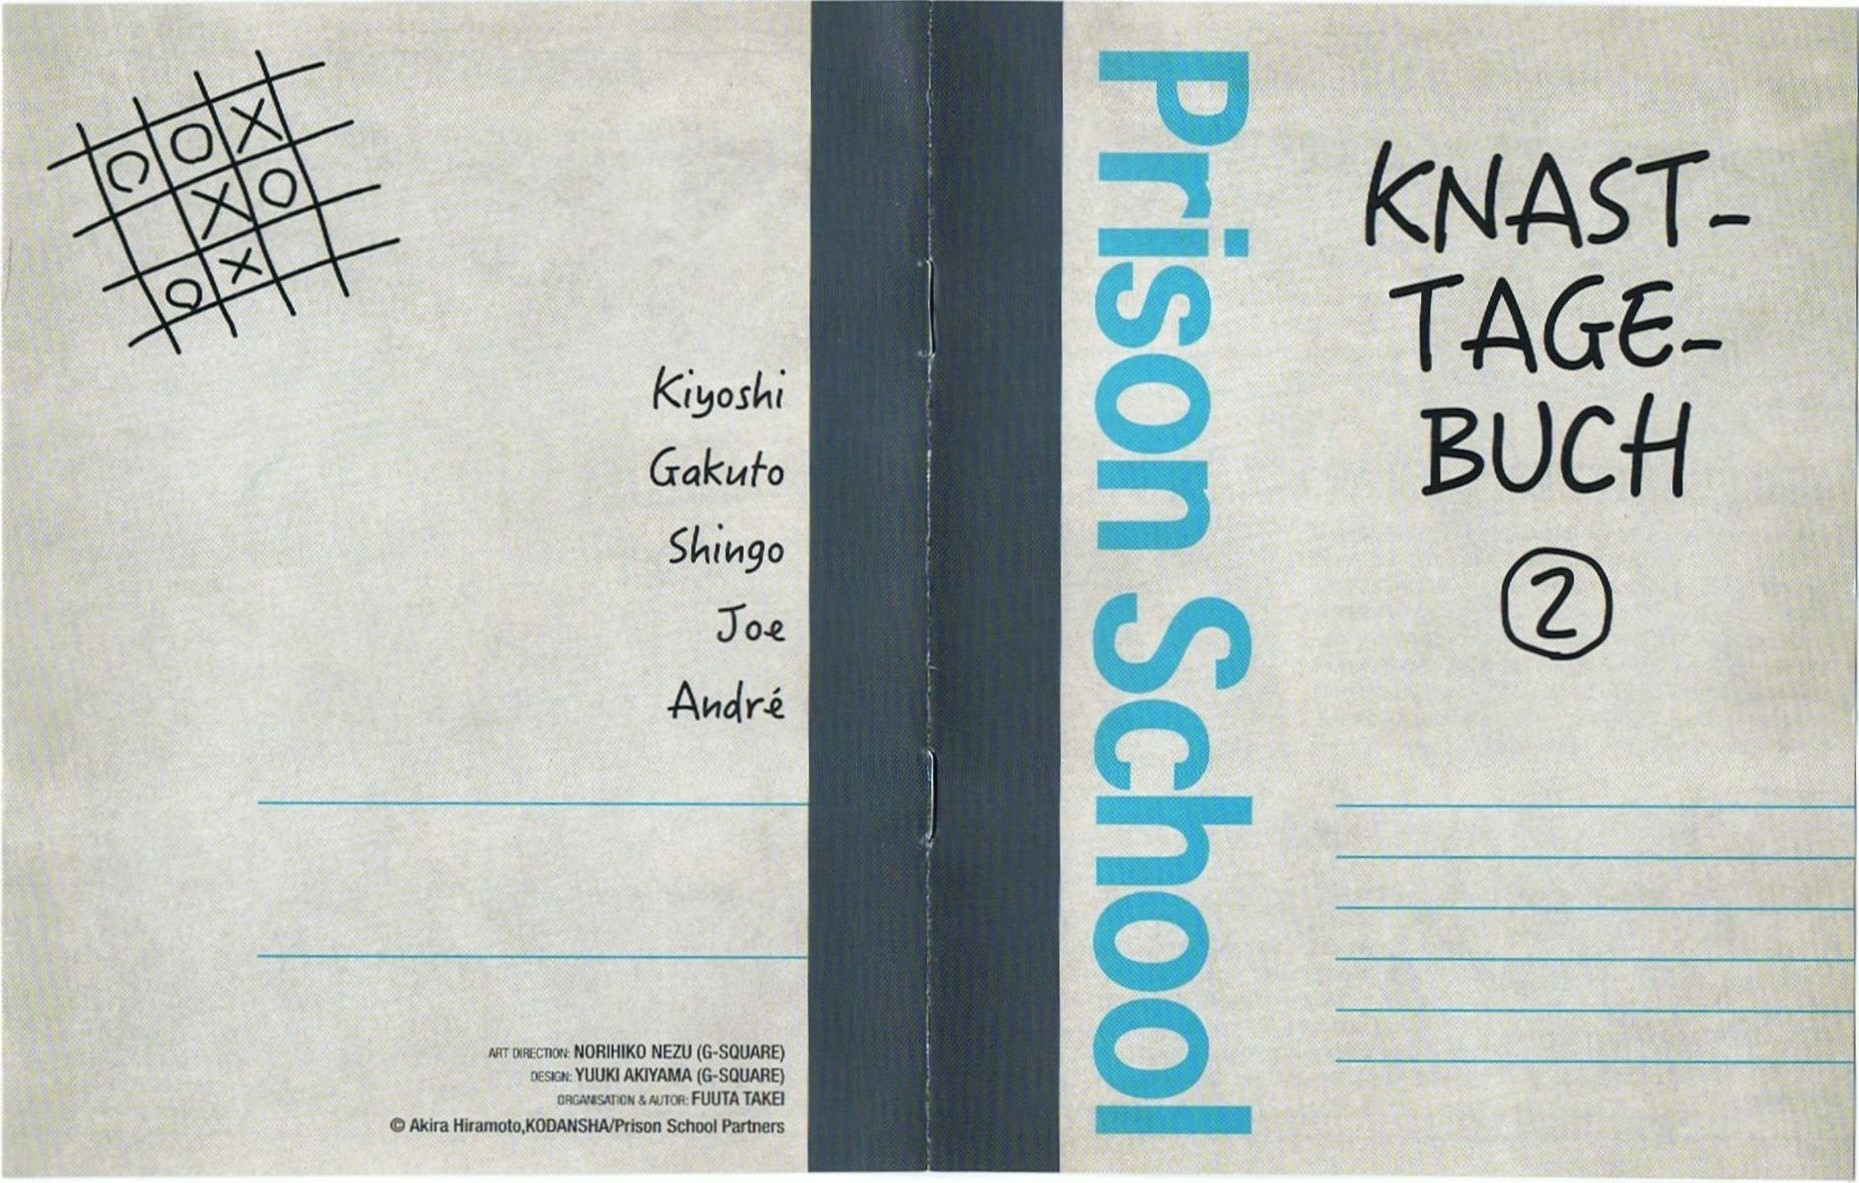 O O X
X O
O X
Kiyoshi
Gakuto
Shingo
Joe
André
ART DIRECTION: NORIHIKO NEZU (G-SQUARE)
DESIGN: YUUKI AKIYAMA (G-SQUARE)
ORGANISATION & AUTOR: FUUTA TAKEI
© Akira Hiramoto,KODANSHA/Prison School Partners
Prison School
KNAST-
TAGE-
BUCH
2